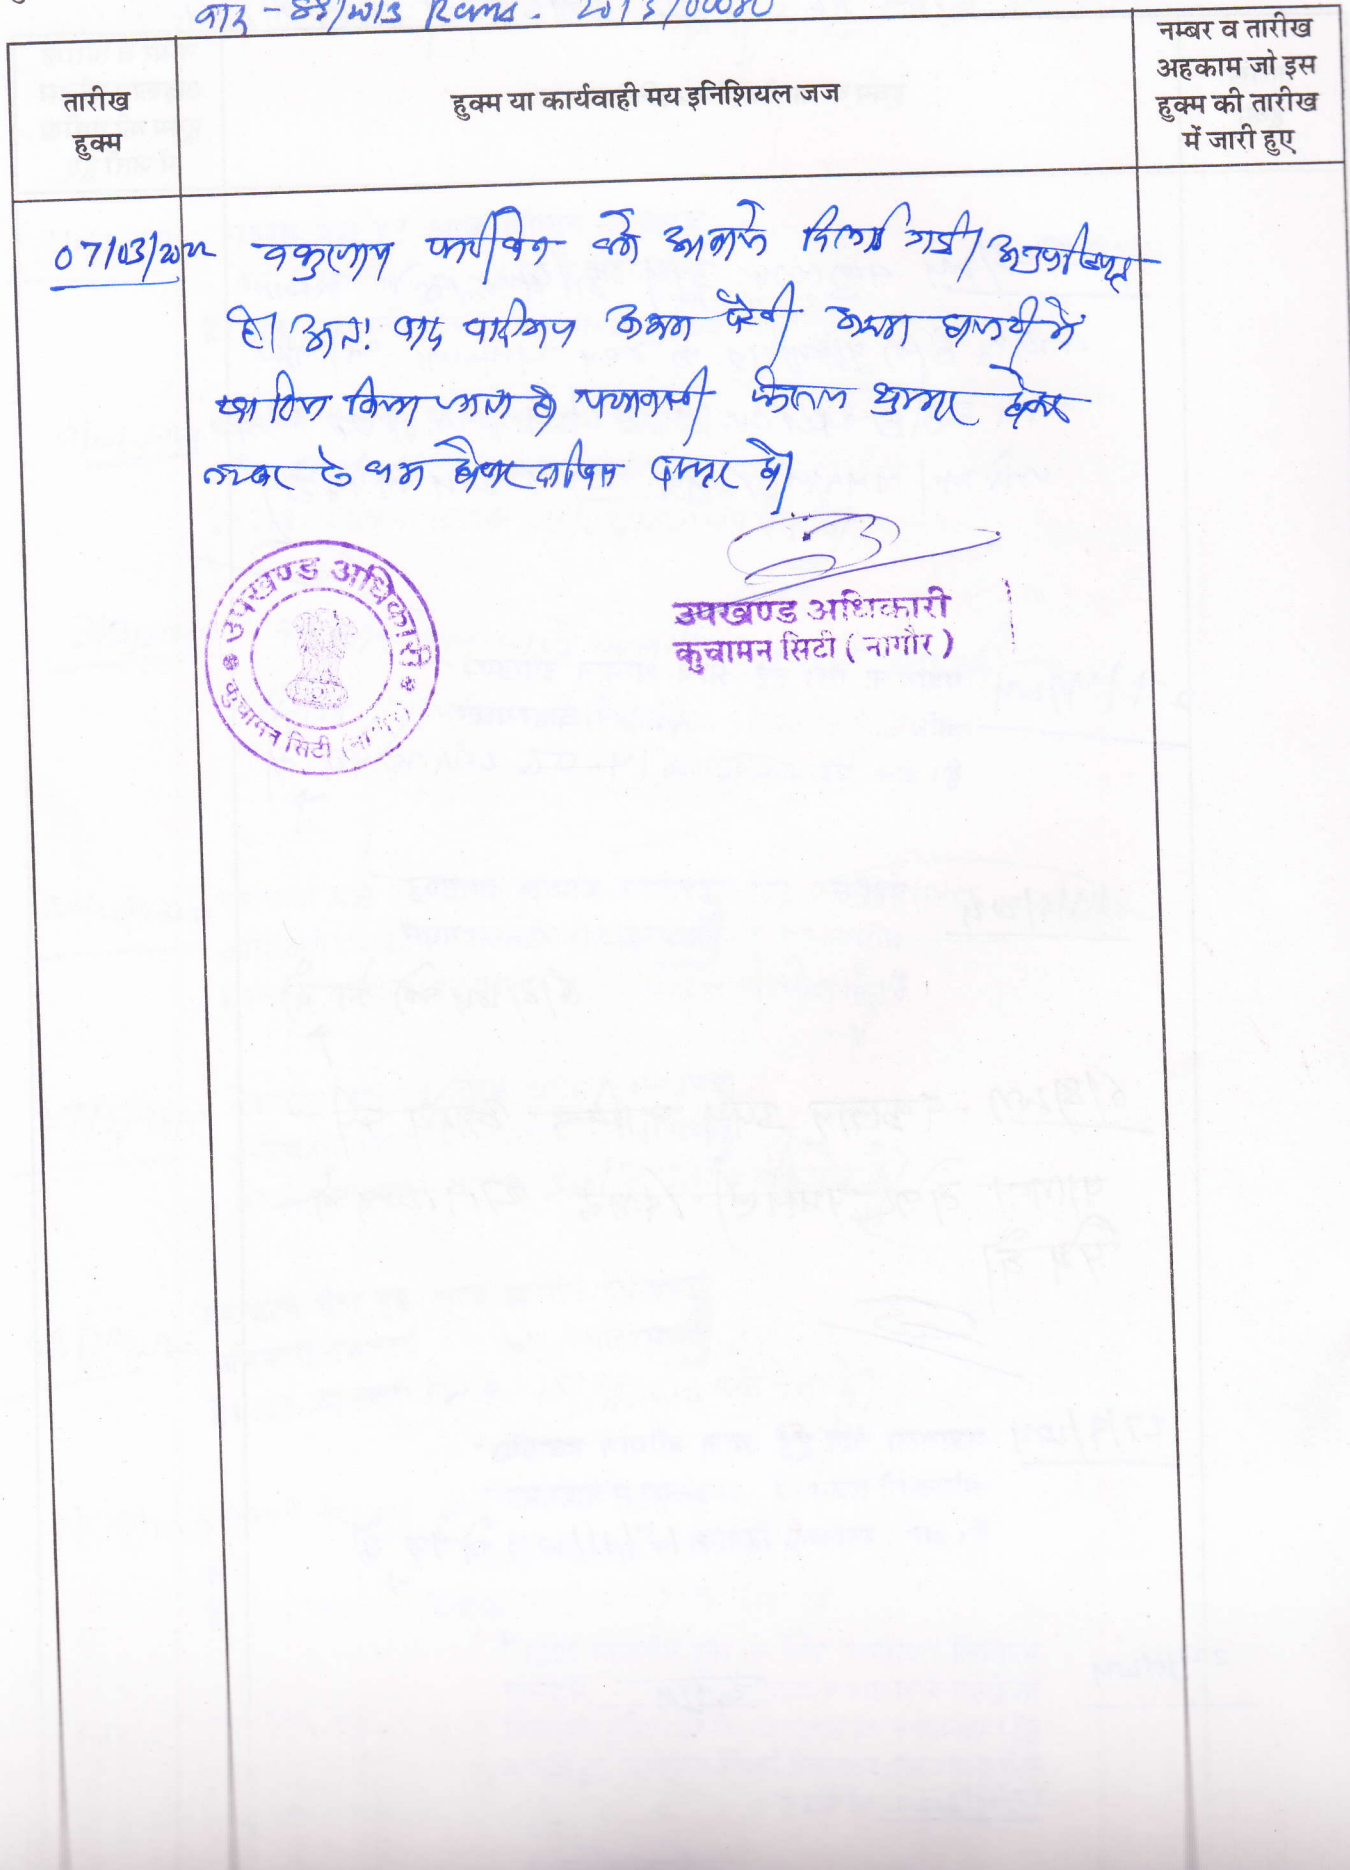 वाद - 44/2013 Rcms. 2013/00080
तारीख
हुक्म
हुक्म या कार्यवाही मय इनिशियल जज
नम्बर व तारीख
अहकाम जो इस
हुक्म की तारीख
में जारी हुए
07/03/2022 वकुलाय को आवाजे दिलाई गई। अनुपस्थित
है। अतः वाद वादीगण अदम पैरवी अदम हाजरी में
खारिज किया जाता है। पत्रावली फैसल शुमार होकर
नम्बर से कम होकर दाखिल दफ्तर हो।
उपखण्ड अधिकारी
कुचामन सिटी ( नागौर )
उपखण्ड अधिकारी
कुचामन सिटी (नागौर)